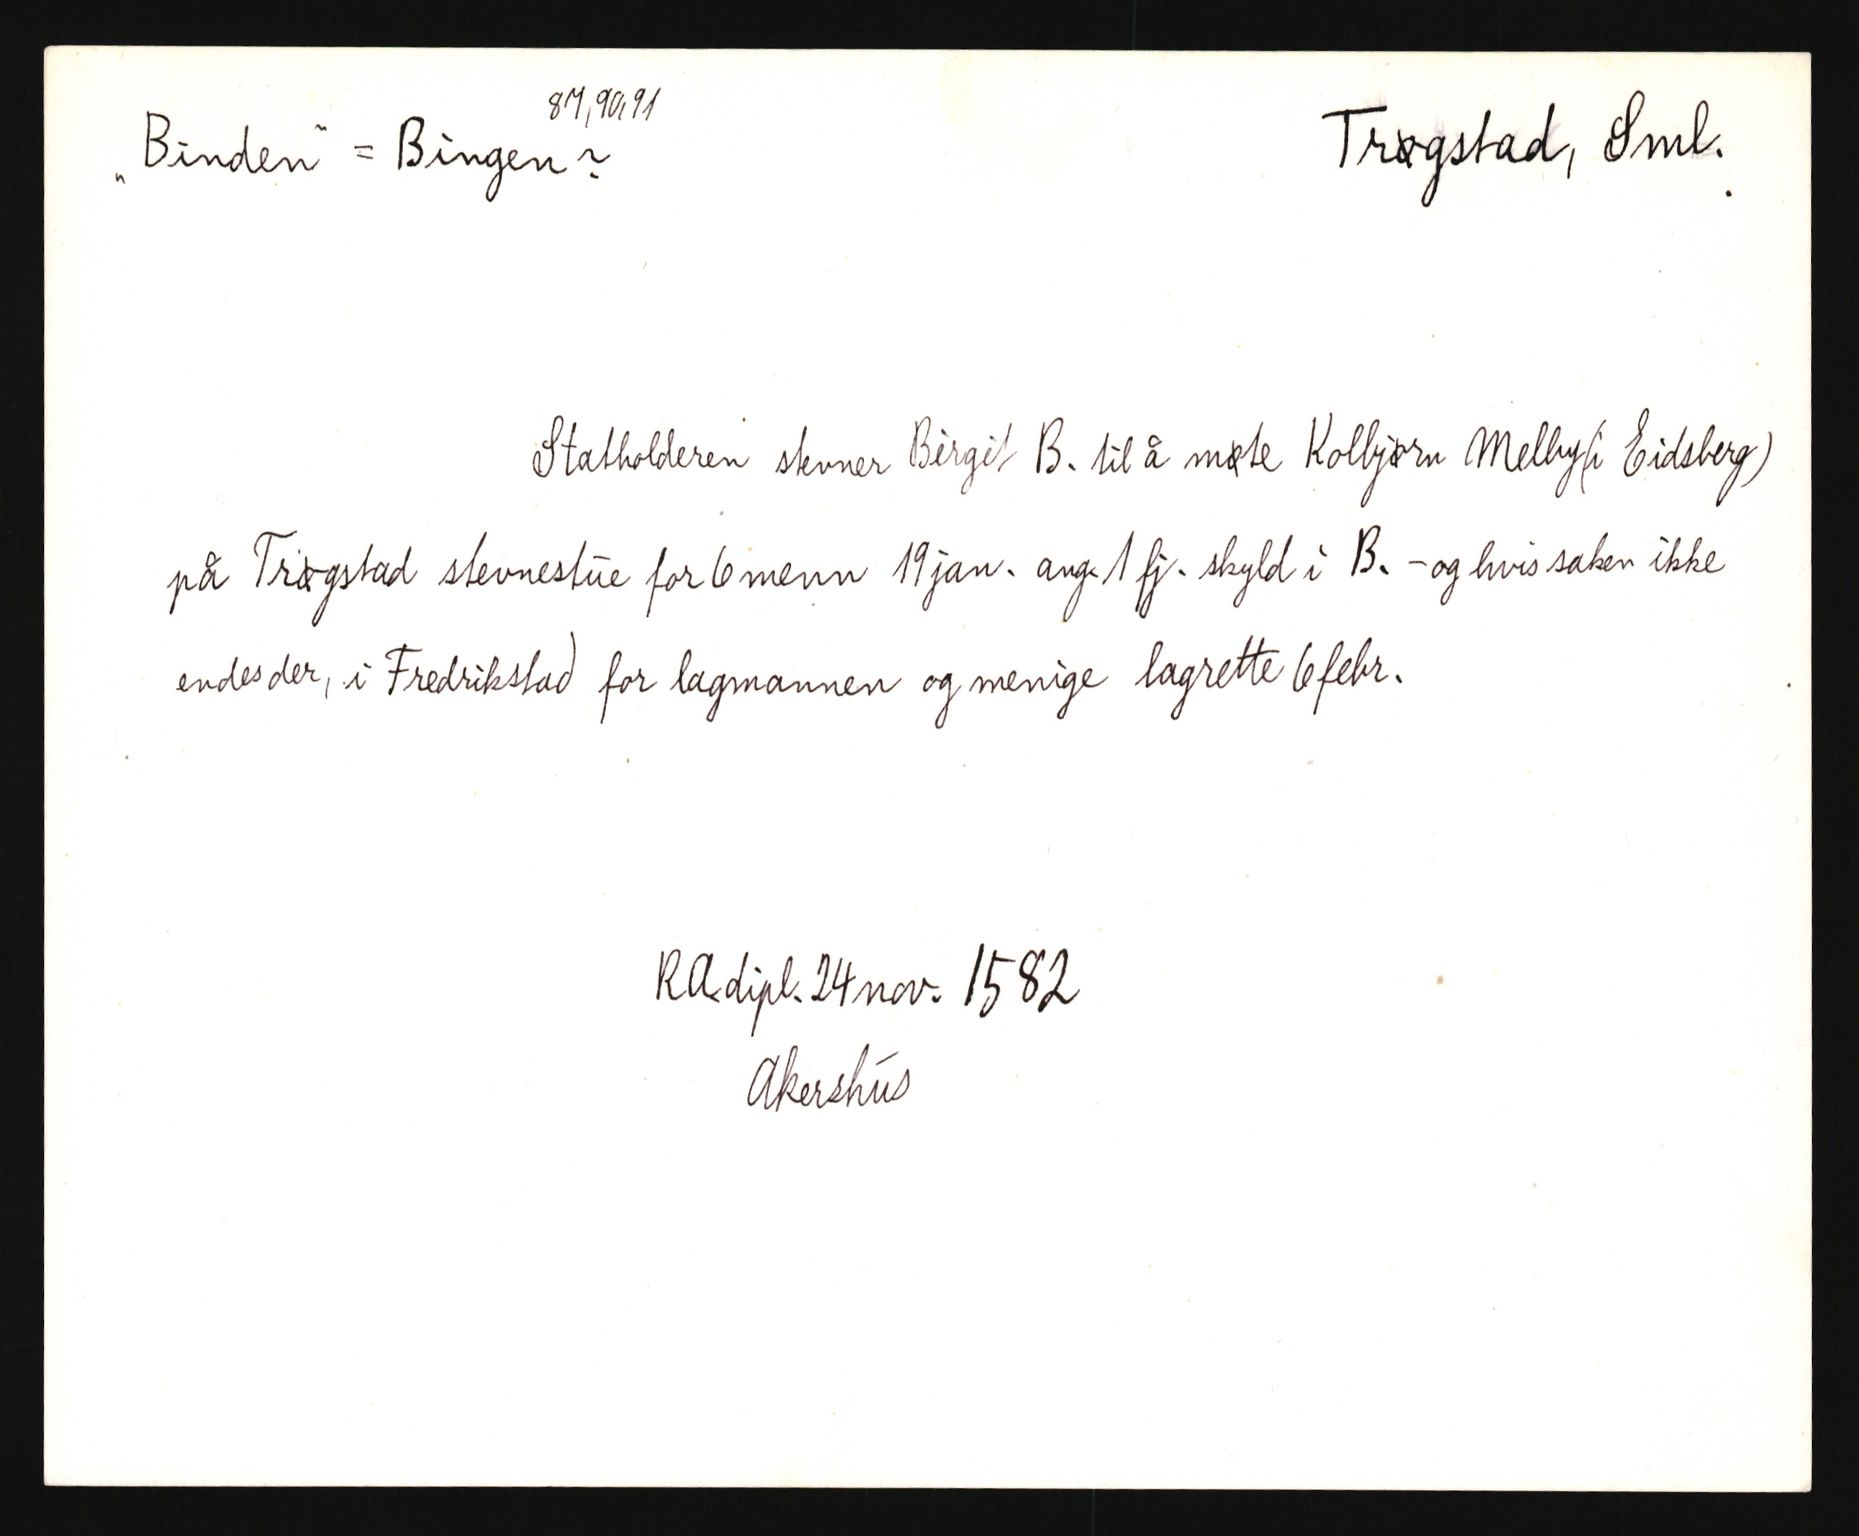 87, 90, 91
„Binden” = Bingen?
Trøgstad, Sml.
Statholderen stevner Birgit B. til å møte Kolbjørn Melby (i Eidsberg)
på Trøgstad stevnestue for 6 menn 19 jan. ang. 1 fj. skyld i B. - og hvis saken ikke
endes der, i Fredrikstad for lagmannen og menige lagrette 6 febr.
RA dipl. 24 nov. 1582
Akershus